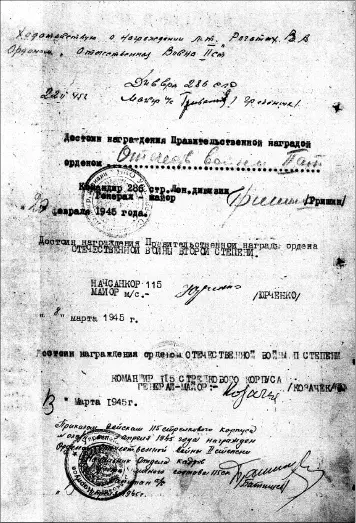 Ходатайствую о награждении м.т. Рогатых В А
Орденом "Отечественная Война II ст
22 II 45 г.
Майор м/с
Достоин награждения Правительственной наградой
орденом Отечеств войны II ст
Командир 286 стр. Лен. дивизии
Генерал майор /Гришин/
февраля 1945 года.
Достоин награждения Правительственной награды ордена
ОТЕЧЕСТВЕННОЙ ВОЙНЫ ВТОРОЙ СТЕПЕНИ.
НАЧСАНКОР-115
МАЙОР м/с.- /ЮРЧЕНКО/
" " марта 1945 г.
Достоин награждения орденом ОТЕЧЕСТВЕННОЙ ВОЙНЫ II СТЕПЕНИ
КОМАНДИР 115 СТРЕЛКОВОГО КОРПУСА
ГЕНЕРАЛ-МАЙОР:- /КОЗАЧЕК/
" Марта 1945г.
Приказом войскам 115 стрелкового корпуса
апреля 1945 года награжден
Отечественной войны II степени
Отдела кадров
1945г.